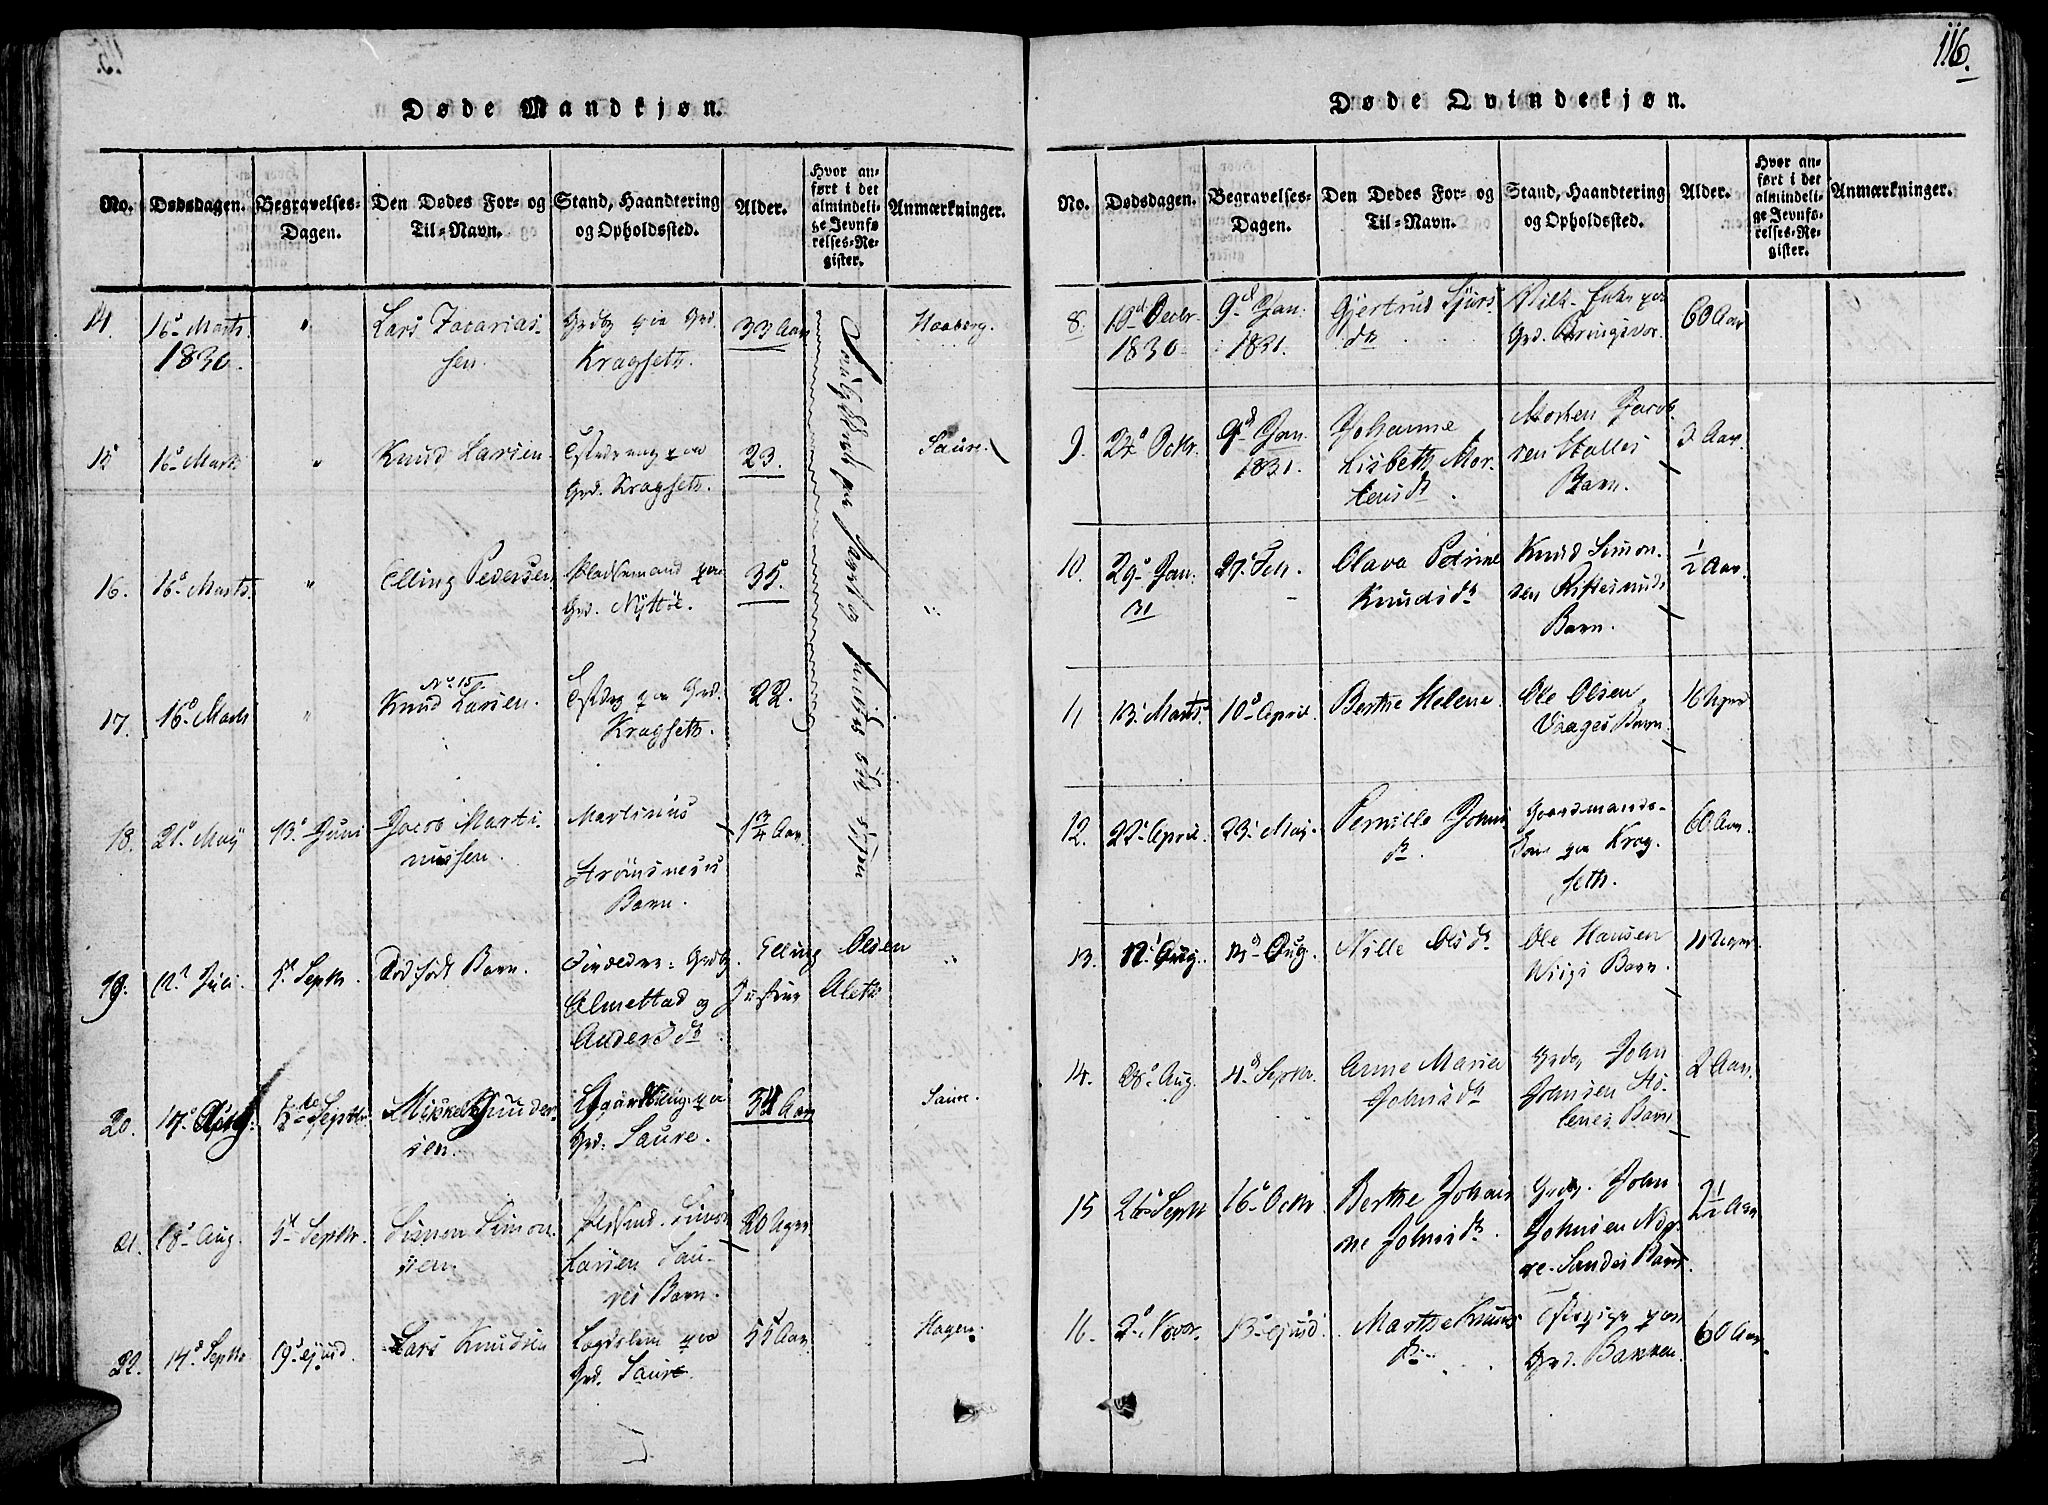 116.
Døde Mandkjøn.
No.
Dødsdagen.
Begravelses-
Dagen.
Den Dødes For- og
Til-Navn.
Stand, Haandtering
og Opholdssted.
Alder.
Hvor an-
ført i det
almindeli-
ge Jevnfø-
relses-Re-
gister.
Anmærkninger.
14.
16d Marts
1830.
"
Lars Zacarias-
sen.
paa Grd.
Kragseth.
33 Aar
15
16d Marts
"
Knud Larsen.
paa
Grd. Kragseth.
23.
Saure.
16.
16d Marts
"
Elling Pedersen
Pladsemand paa
Grd. Nyttøe.
35.
"
17.
16d Marts
"
No 15
Knud Larsen.
paa Grd.
Kragseth.
22.
18.
21d Maÿ
13d Juni
Jacob Marti-
nussen.
Martinus
Strömsness
Barn.
1 3/4 Aar
19.
12d Juli.
5d Septbr.
Dødfødt Barn.
Forældre: Grdbr. Elling Olsen
Almestad og Justine Aleth
Anders dtr
"
20.
Septbr.
Mikkel
sen.
paa
Grd. Saure.
Aar
Saure.
21.
18d Aug.
5d Septbr.
Simon Simon-
sen.
Pladsmd. Simon
Larsen Sau-
res Barn.
20 Uger
22.
14d Septbr
19d ejusd.
Lars Knudsen
Lægdslem paa
Grd. Saure.
55 Aar
Hagen.
Døde Qvindekjøn.
No.
Dødsdagen.
Begravelses-
Dagen.
Den Dødes For- og
Til-Navn.
Stand, Haandtering
og Opholdssted.
Alder.
Hvor an-
ført i det
almindeli-
ge Jevnfø-
relses-Re-
gister.
Anmærkninger.
8.
Decbr.
1830
9d Jan.
1831.
Gjertrud Sjurs
dtr
Pilk. Enke paa
Grd. Bringsvor.
60 Aar
9.
24d Octbr.
9d Jan.
1831.
Johanne
Lisbeth Mor-
tensdtr
Morten Jacob-
sen Halles
Barn.
2 Aar.
10.
29d Jan.
31
27d Feb.
Olava Petrine
Knudsdtr
Knud Simon-
sen Riftesunds
Barn.
1/2 Aar.
11
13d Marts
10d April.
Berthe Helene.
Ole Olsen
Vaages Barn.
16 Uger
12.
22d April.
23d Maj.
Pernille Johns
dtr.
Gaardmands-
Kone paa Krag-
seth.
60 Aar.
13.
12d Aug.
Aug.
Nille Olsdtr
Ole Hansen
Wiigs Barn.
11 Uger.
14.
28d Aug.
4d Septbr.
Anne Maria
Johnsdtr
Grdbr. John
Johnsen Hó-
lenes Barn
2 Aar.
15
26d Septbr
16d Octbr
Berthe Johan-
ne Johnsdtr.
Grdbr. John
Johnsen Nør-
re-Sandes Barn.
2 1/2 Aar
16.
2d Novbr.
13d ejusd.
Marthe Knuds
dtr
paa
Grd. Bakken.
60 Aar.